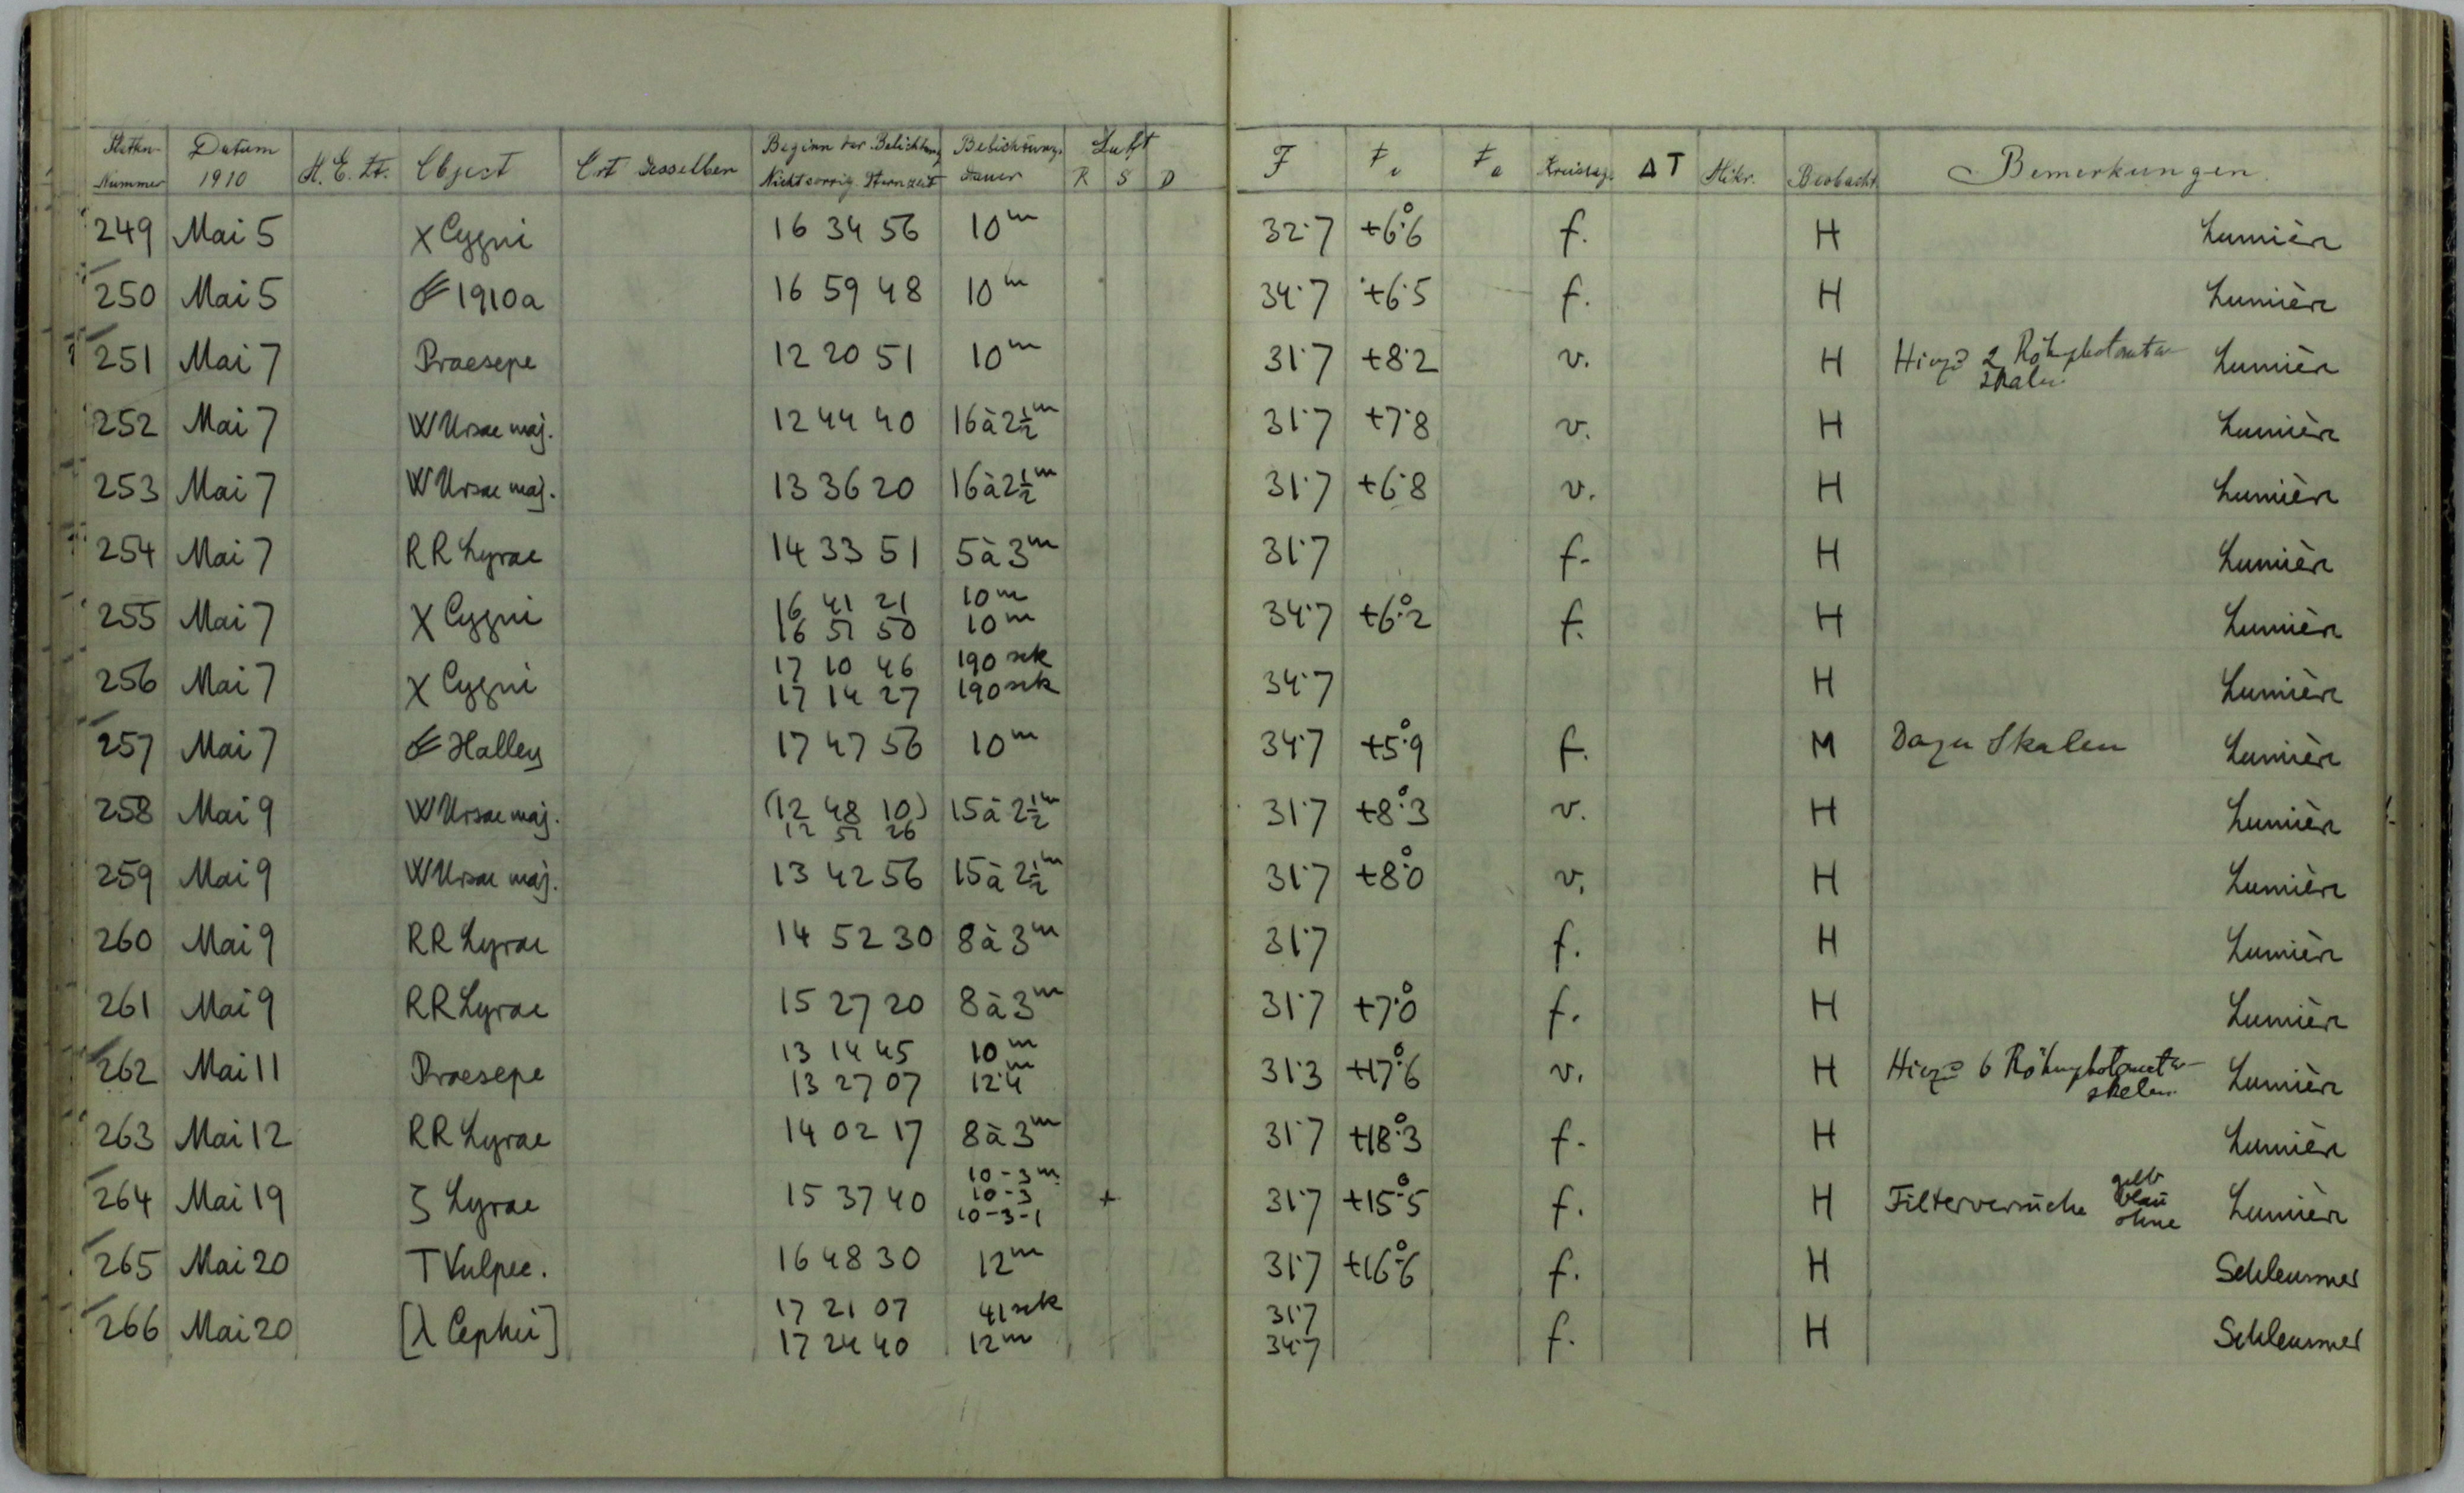 Platten-Nummer Datum 1910 M. E. Zt. Object Ort desselben Beginn der Belichtung Nicht corrig. Sternzeit Belichtungsdauer Luft R S D F t i t a Kreislag. ΔT Mikr. Beobacht. Bemerkungen.
249 Mai 5 X Cygni 16 34 56 10m 32.7 +6°.6 f. H Lumière
250 Mai 5 ☄ 1910a 16 59 48 10m 34.7 +6.5 f. H Lumière
251 Mai 7 Praesepe 12 20 51 10m 31.7 +8.2 v. H 2 Lumière
Skalen
252 Mai 7 W Ursae maj. 12 44 40 16 à 2½m 31.7 +7.8 v. H Lumière
253 Mai 7 W Ursae maj. 13 36 20 16 à 2½m 31.7 +6.8 v. H Lumière
254 Mai 7 RR Lyrae 14 33 51 5 à 3m 31.7 f. H Lumière
255 Mai 7 X Cygni 16 41 21 10m 34.7 +6°.2 f. H Lumière
16 51 50 10m
256 Mai 7 X Cygni 17 10 46 190 sek 34.7 H Lumière
17 14 27 190 sek
257 Mai 7 ☄ Halley 17 47 56 10m 34.7 +5°.9 f. M Dazu Skalen Lumière
258 Mai 9 W Ursae maj. (12 48 10) 15 à 2½m 31.7 +8°.3 v. H Lumière
12 51 26
259 Mai 9 W Ursae maj. 13 42 56 15 à 2½m 31.7 +8°.0 v. H Lumière
260 Mai 9 RR Lyrae 14 52 30 8 à 3m 31.7 f. H Lumière
261 Mai 9 RR Lyrae 15 27 20 8 à 3m 31.7 +7°.0 f. H Lumière
262 Mai 11 Praesepe 13 14 45 10m 31.3 +17°.6 v. H 6 Lumière
13 27 07 12.4m skalen
263 Mai 12 RR Lyrae 14 02 17 8 à 3m 31.7 +18°.3 f. H Lumière
264 Mai 19 ζ Lyrae 15 37 40 10-3m + 31.7 +15°.5 f. H Filterversuche gelb Lumière
10-3 blau
10-3-1 ohne
265 Mai 20 T Vulpec. 16 48 30 12m 31.7 +16°.6 f. H Schleussner
266 Mai 20 [λ Cephei] 17 21 07 41 sek 31.7 f. H Schleussner
17 24 40 12m 34.7